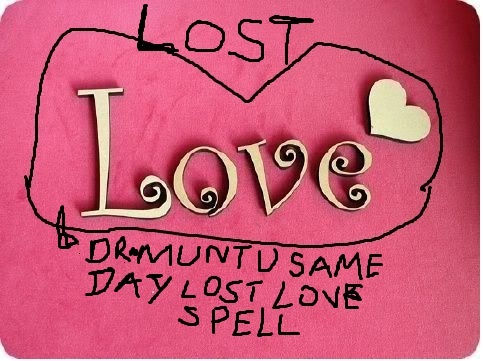 LOST
Love
DR MUNTU SAME
DAY LOST LOVE
SPELL